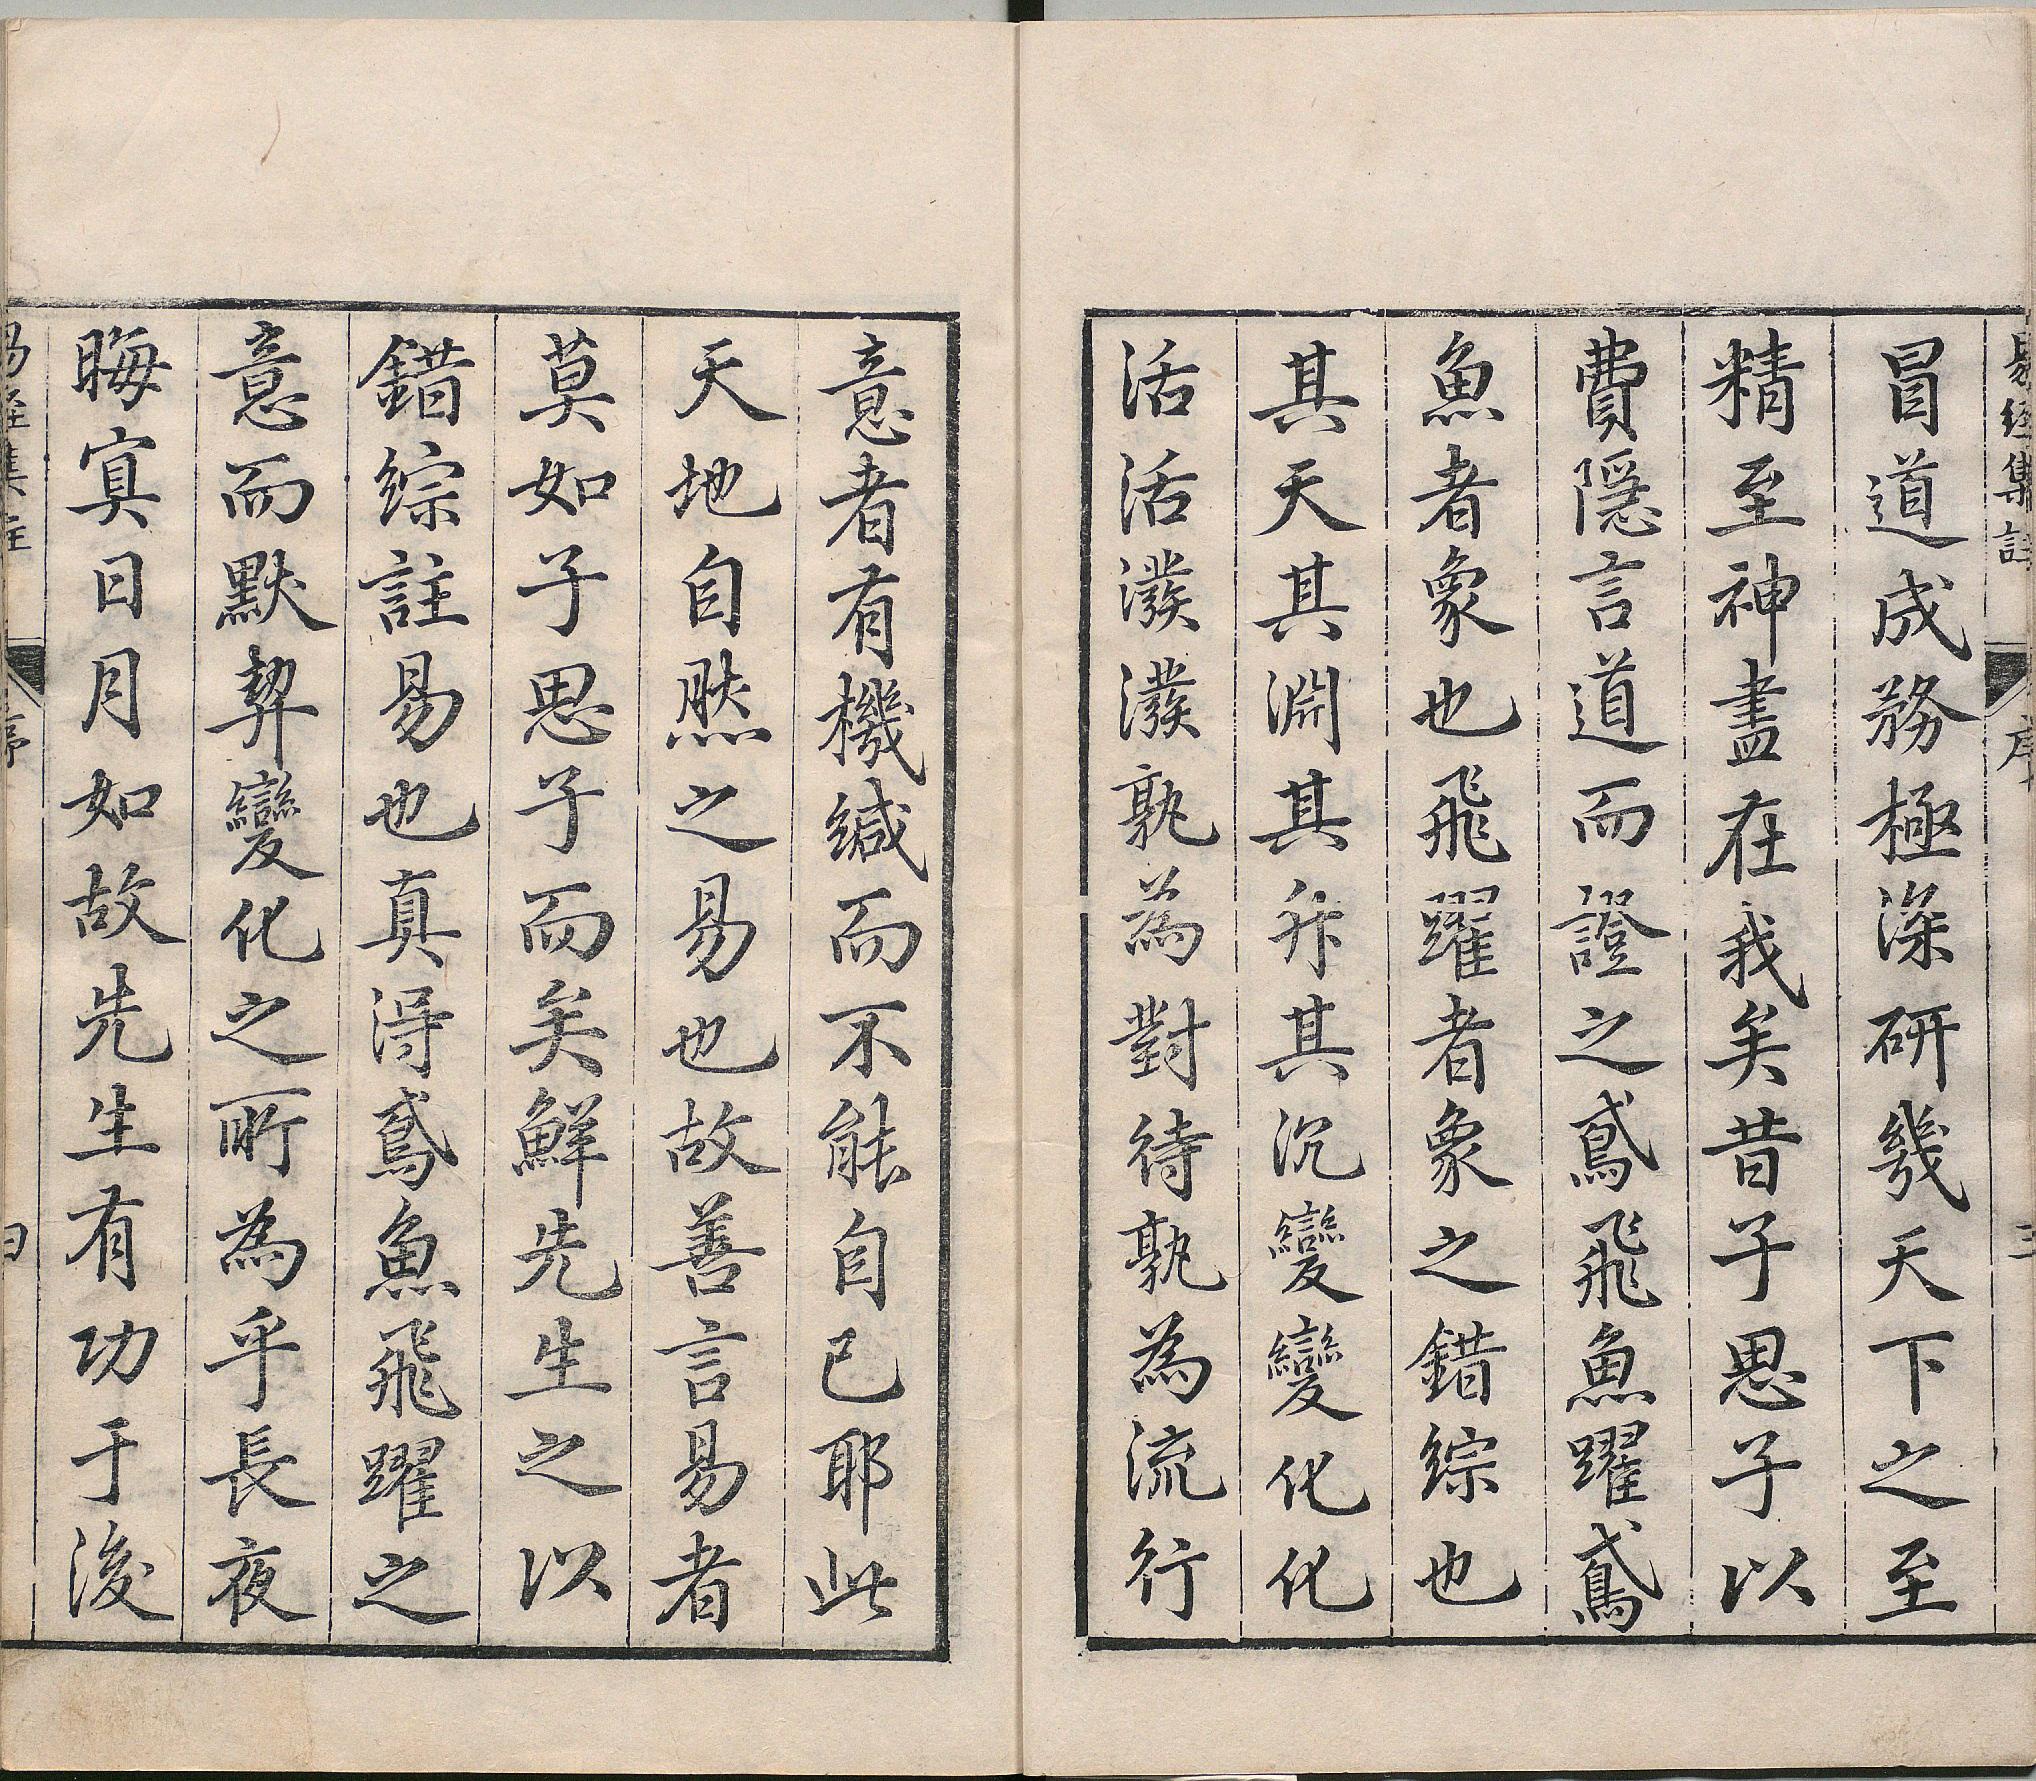 易經集註 序 三
冒道成務極深研幾天下之至
精至神盡在我矣昔子思子以
費隱言道而證之鳶飛魚躍鳶
魚者象也飛躍者象之錯綜也
其天其淵其升其沉變變化化
活活潑潑孰為對待孰為流行
意者有機緘而不能自已耶此
天地自然之易也故善言易者
莫如子思子而矣鮮先生之以
錯綜註易也真得鳶魚飛躍之
意而默契變化之所為乎長夜
晦冥日月如故先生有功于後
易經集註 序 四